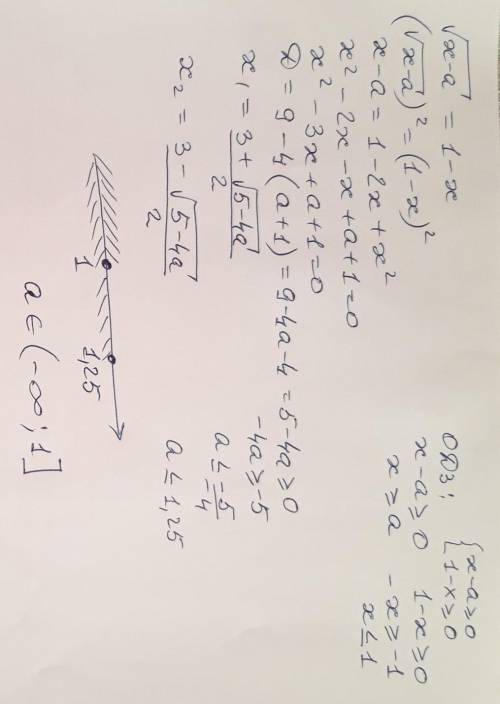 √x-a = 1-x
(√x-a)² = (1-x)²
x-a = 1-2x+x²
x² - 2x - x + a + 1 = 0
x² - 3x + a + 1 = 0
D = 9 - 4(a+1) = 9 - 4a - 4 = 5 - 4a ≥ 0
x₁ = 3 + √5-4a / 2
x₂ = 3 - √5-4a / 2
-4a ≥ -5
a ≤ -5/-4
a ≤ 1,25
ОДЗ: { x-a ≥ 0
1-x ≥ 0
x-a ≥ 0 1-x ≥ 0
x ≥ a -x ≥ -1
x ≤ 1
1 1,25
a ∈ (-∞; 1]